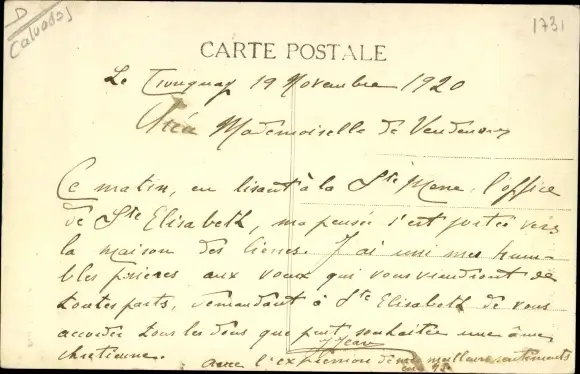 D
Calvados
1731
CARTE POSTALE
Le 19 Novembre 1920
Mademoiselle de
Ce matin, en lisant à la Ste Messe, l'office
de Ste Elisabeth, ma pensée s'est portée vers
la maison des lierres. J'ai uni mes hum-
bles prières aux voeux qui vous viendront de
toutes parts, demandant à Ste Elisabeth de vous
accorder tous les dons que peut souhaiter une âme
chrétienne.
avec l'expression de mes meilleurs sentiments
en